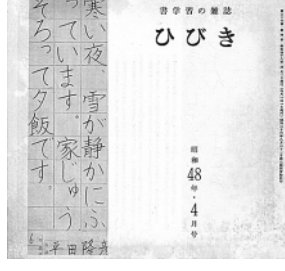 書学習の雑誌
ひびき
昭和48年・4月号
寒い夜、雪が静かにふ
っています。家じゅう
そろって夕飯です。
平田隆